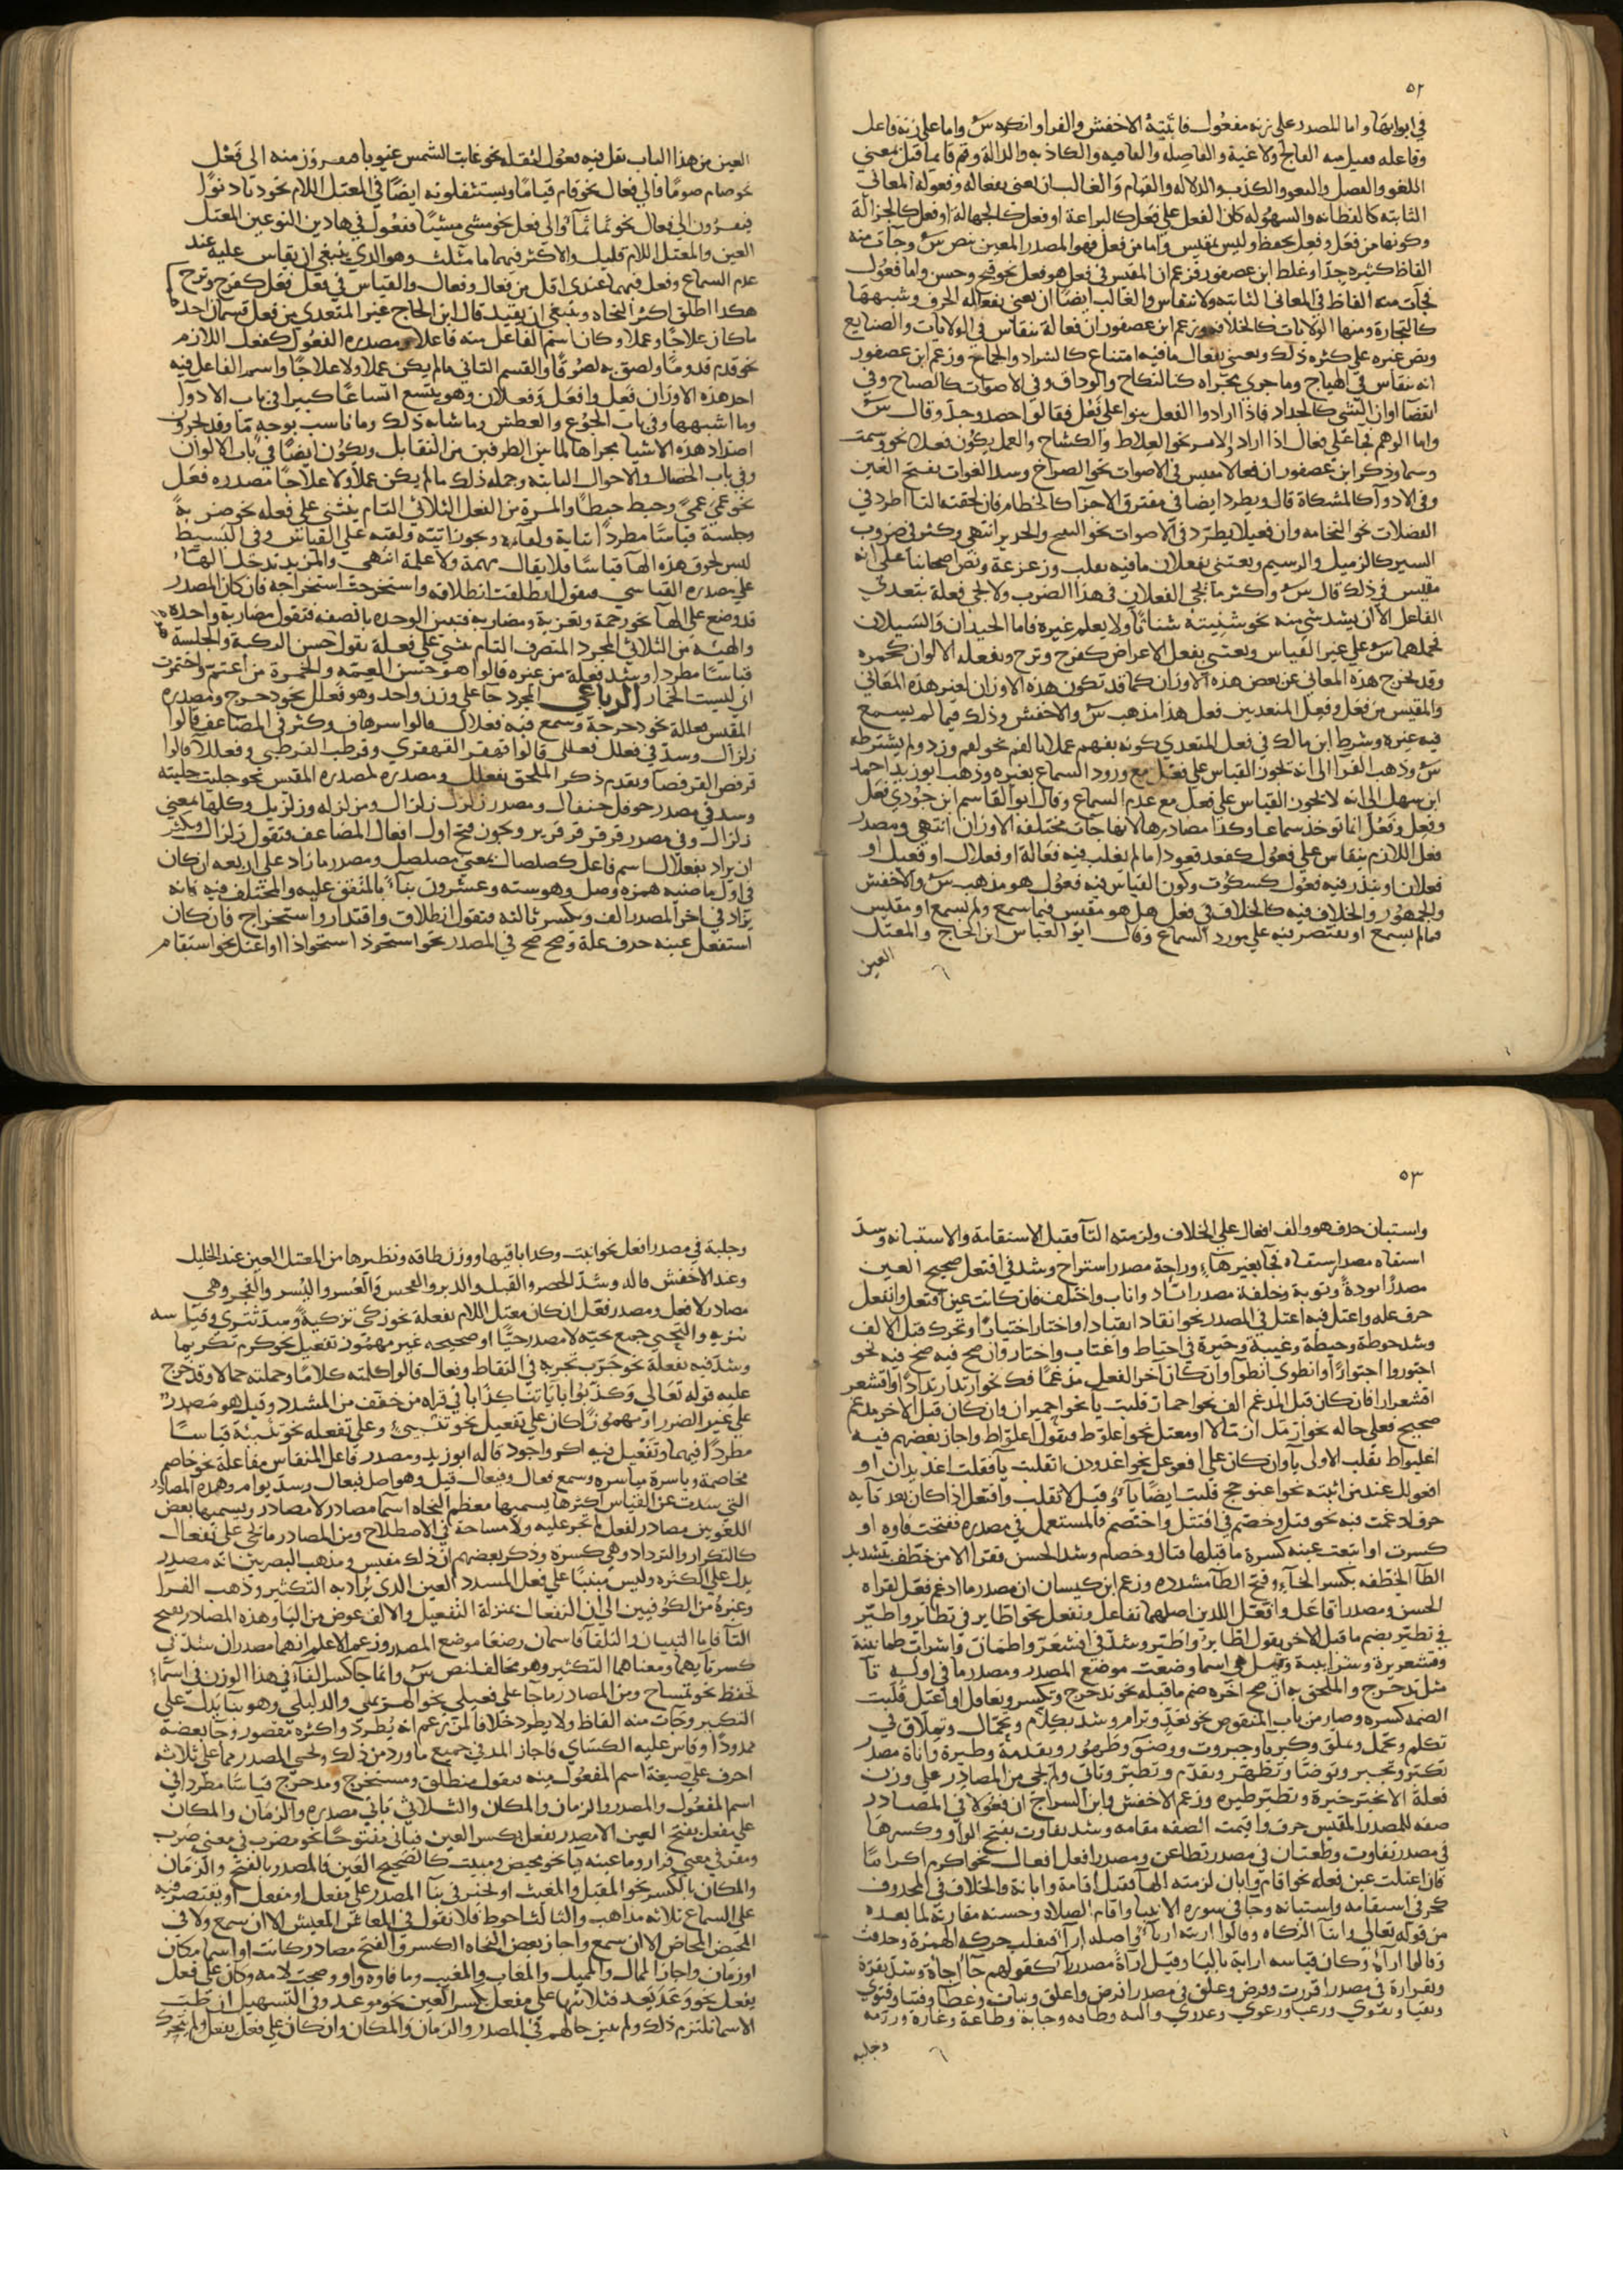 ٥٢
في ابوابها واما المصدر على زنة مفعول فاثبته الاخفش والفرا وانكره س واما على زنة فاعل
وفاعله فقيل منه الفالج ولاغية والفاضله والعافيه والكاذبه والدالة وقم قايما قيل بمعنى
اللغو والفضل والكذب والدلاله والقيام والغالب ان يعنى بفعاله وفعولة المعاني
الثابته كالفظانه والسهوله كان الفعل على فعل كالبراعة او فعل كالجهالة او فعل كالجزالة
وكونها من فعل وفعل يحفظ وليس بمقيس واما من فعل فهو المصدر المعين بنص س وجآت منه
الفاظ كثيره جدا وغلط ابن عصفور فزعم ان المقيس في فعل هو فعل نحو قبح وحسن واما فعول
فجآت منه الفاظ في المعاني الثابته ولا تنقاس والغالب ايضا ان يعنى بفعاله الحرف وشبهها
كالتجارة ومنها الولايات كالخلافه وزعم ابن عصفور ان فعالة تنقاس في الولايات والصنايع
ونص غيره على كثره ذلك ويعنى بفعال ما فيه امتناع كالشراد والجماح وزعم ابن عصفور
انه ينقاس في الهياج وما جرى مجراه كالنكاح والوداق وفي الاصوات كالصياح وفي
انقضا اوان الشي كالجداد فاذا ارادوا الفعل بنوا على فعل فقالوا حصد وجد وقال س
واما الوسم فجا على فعال اذا اراد الاسم نحو العلاط والكشاح والعمل يكون فعلا نحو وسمت
وسما وذكر ابن عصفور ان فعالا مقيس في الاصوات نحو الصراخ وشد الغوات بفتح الغين
وفي الادوآ كالمشكاة قال ويطرد ايضا في مفترق الاجزا كالحطام فان لحقته التا اطرد في
الفضلات نحو النخامه وان فعيلا يطرد في الاصوات نحو والحرير انتهى وكثر في ضروب
السير كالزميل والرسيم ويعنى بفعلان ما فيه تقلب وزعزعة ونص اصحابنا على انه
مقيس في ذلك قال س واكثر ما يجي الفعلان في هذا الضرب ولا يجي فعلة يتعدى
الفاعل الا ان يشد شي منه نحو شنيته شنانا ولا يعلم غيره فاما الحيدان والميلان
فحملهما س على غير القياس ويعنى بفعل الاعراض كفرح وترح وبفعله الالوان كحمره
وقد تخرج هذه المعاني عن بعض هذه الاوزان كما قد تكون هذه الاوزان لغير هذه المعاني
والمقيس من فعل وفعل المتعديين فعل هذا مذهب س والاخفش وذلك فيما لم يسمع
فيه غيره وشرط ابن مالك في فعل المتعدي كونه يفهم عملا بالفم نحو لقم وزرد ولم يشترطه
س وذهب الفرا الى انه يجوز القياس على فعل مع ورود السماع بغيره وذهب ابو زيد احمد
ابن سهل الى انه لا يجوز القياس على فعل مع عدم السماع وقال ابو القاسم ابن جودي فعل
وفعل وفعل انما توخذ سماعا وكذا مصادرها لانها جات مختلفة الاوزان انتهى ومصدر
فعل اللازم ينقاس على فعول كقعد قعودا ما لم يغلب فيه فعالة او فعال او فعيل او
فعلان او يندر فيه فعول كسكوت وكون القياس فيه فعول هو مذهب س والاخفش
والجمهور والخلاف فيه كالخلاف في فعل هل هو مقيس فيما سمع ولم يسمع او مقيس
فيما لم يسمع او نقتصر فيه على مورد السماع وقال ابو العباس ابن الحاج والمعتل
العين
العين من هذا الباب يقل فيه فعول لثقله نحو غابت الشمس غيوبا يفرون منه الى فعل
نحو صام صوما والى فعال نحو قام قياما ويستثقلونه ايضا في المعتل اللام نحو دنا دنوا
فيفرون الى فعال نحو نما نمآ والى فعل نحو مشى مشيا ففعول في هاذين النوعين المعتل
العين والمعتل اللام قليل والاكثر فيهما ما مثلت وهو الذي ينبغي ان يقاس عليه عند
عدم السماع وفعل فيهما عندي اقل من فعال وفعال والقياس في فعل فعل كفرح وترح
هكذا اطلق اكثر النحاه وينبغي ان يقيد قال ابن الحاج غير المتعدي من فعل قسمان احدهما
ما كان علاجا وعملا وكان اسم الفاعل منه فاعلا ومصدره الفعول كفعل اللازم
نحو قدم قدوما ولصق به لصوقا والقسم الثاني ما لم يكن عملا ولا علاجا واسم الفاعل فيه
احد هذه الاوزان فعل وافعل وفعلان وهو يتسع اتساعا كبيرا في باب الادوآ
وما اشبهها وفي باب الجوع والعطش وما شابه ذلك وما ناسب بوجه ما وقد تجري
اضداد هذه الاشيا مجراها لما بين الطرفين من التقابل ويكون ايضا في باب الالوان
وفي باب الخصال والاحوال الثابته وجمله ذلك ما لم يكن عملا ولا علاجا مصدره فعل
نحو عمي عمى وحبط حبطا والمرة من الفعل الثلاثي التام يبنى على فعله نحو ضربة
وجلسة قياسا مطردا وشد اتيانة ولقاءة ويجوز اتيته ولقيته على القياس وفي البسيط
ليس لحوق هذه الهآ قياسا فلا يقال فهمة ولا علمة انتهى والمزيد تدخل الهآ
على مصدره القياسي فيقول انطلقت انطلاقه واستخرجت استخراجه فان كان المصدر
قد وضع على الهآ نحو رحمة وتعزية ومضاربه فتبين الوحده بالصفه فتقول مضاربة واحده
والهيئه من الثلاثي المجرد المتصرف التام تبنى على فعلة تقول حسن الركبة والجلسة
قياسا مطردا وشد فعلة من غيره قالوا هو حسن العمه والخمرة من اعتم واختمرت
اي لبست الخمار الرباعي المجرد جآ على وزن واحد وهو فعلل نحو دحرج ومصدره
المقيس فعللة نحو دحرجة وسمع فيه فعلال قالوا سرهاف وكثر في المضاعف قالوا
زلزال وشد في فعلل فعللى قالوا قهقر القهقرى وقرطب القرطبى وفعللا قالوا
قرفص القرفصا وتقدم ذكر الملحق بفعلل ومصدره كمصدره المقيس نحو جلبب جلببه
وشد في مصدر حوقل حيقال ومصدر زلزل زلزال ومن لزله وزلزيل وكلها بمعنى
زلزال وفي مصدر قرقر قرقرير ويجوز فتح اول افعال المضاعف فتقول زلزال ويكثر
ان يراد بفعلال اسم فاعل كصلصال بمعنى مصلصل ومصدر ما زاد على اربعه ان كان
في اول ماضيه همزه وصل وهو سته وعشرون بنآ بالمتفق عليه والمختلف فيه فانه
يزاد في اخر المصدر الف ويكسر ثالثه فتقول انطلاق واقتدار واستخراج فان كان
استفعل عينه حرف علة وصح صح في المصدر نحو استحوذ استحواذا او اعتل نحو استقام
٥٣
واستبان حذف هو والف افعال على الخلاف ولزمته التآ فقيل الاستقامة والاستبانه وشد
استقاه مصدر استقاه فجا بغير هآء وراحة مصدر استراح وشد في افتعل صحيح العين
مصدر اتودة وتوبة وخلفة مصدر اتاد واتاب واختلف فان كانت عين افتعل وانفعل
حرف عله واعتل فيه اعتل في المصدر نحو انقاد انقيادا واختار اختيارا وتحرك قبل الالف
وشد حوطة وحيطة وغيبة وخيرة في احتاط واغتاب واختار وان صح فيه صح فيه نحو
اجتوروا اجتوارا وانطوى انطوآ وان كان اخر الفعل مدغما فك نحو ارتد ارتدادا واقشعر
اقشعرارا فان كان قبل المدغم الف نحو احمار قلبت يآ نحو احميرار وان كان قبل الاخر مدغم
صحيح فعلى حاله نحو ازمل ازمالا او معتل نحو اعلوط فتقول اعلواط واجاز بعضهم فيه
اعليواط بقلب الاولى يآ وان كان على افعوعل نحو اغدودن انقلبت يآ فقلت اغديدان او
افعولل عند من اثبته نحو اعثوجج قلبت ايضا يآ وقيل لا تقلب وافتعل اذا كان بعد تآيه
حرف ادغمت فيه نحو قتل وخصم في اقتتل واختصم فالمستعمل في مصدره ففتحت فاوه او
كسرت او اتبعت عينه كسرة ما قبلها قتال وخصام وشد الحسن فقرا الا من خطف بتشديد
الطآ الخطفه بكسر الخآء وفتح الطآ مشدده وزعم ابن كيسان ان مصدر ما ادغم فعل لقراه
الحسن ومصدر افاعل وافعل اللذين اصلهما تفاعل وتفعل نحو اطاير في تطاير واطير
في تطير بضم ما قبل الاخر يقول اطاير واطير وشد في اقشعر واطمان واشرات طمانينة
وقشعريرة وشرابيبة وقيل هي اسما وضعت موضع المصدر ومصدر ما في اوله تآ
مثل تدحرج والملحق به ان صح اخره ضم ما قبله نحو تدحرج وتكسر وتغافل او اعتل قلبت
الضمه كسره وصار من باب المنقوص نحو تعد وترام وشد تكلام وتحمال وتملاق في
تكلم وتحمل وتملق وكبريا وجبروت وقدمة وطيرة واناة مصدر
تكبر وتجبر وتوضا وتطهر وتقدم وتطير وتانى ولم يجي من المصادر على وزن
فعلة الا تخير خيرة وتطير طيره وزعم الاخفش وابن السراج ان فعولا في المصادر
صفه للمصدر المقيس حذف واقيمت الصفه مقامه وشد تفاوت بفتح الواو وكسرها
في مصدر تفاوت في مصدر تطاعن ومصدر افعل افعال نحو اكرم اكراما
فان اعتلت عين فعله نحو اقام وابان لزمته الهآ فقيل اقامة وابانة والخلاف في المحذوف
كهو في استقامه واستبانه وجا في سوره الانبيا واقام الصلاه وحسنه مقارنته لما بعده
من قوله تعالى وايتآ الزكاه وقالوا اريته ارآ واصله ارآا فنقلت حركه الهمزة وحذفت
وقالوا ارآه وكان قياسه ارايه باليا وقيل ارآة مصدر رآ كقولهم جآ اجآة وشد بقرة
وبقرارة في مصدر اقررت وقرض وعلق في مصدر اقرض واعلق ونبات وعطا وفتيا وفتوى
وبقيا وبقوى ورعيا ورعوى وعدوى وطاقه وجابة وطاعة وغارة ورزمه
وجلبه
وجلبة في مصدر افعل نحو انبت وكذا باقيها ووزن طاقه ونظيرها من المعتل العين عند الخليل
وعند الاخفش فاله وشد الحصر والقبل والدبر والفحس والعسر واليسر والنجر وهي
مصادر لا فعل ومصدر فعل ان كان معتل اللام تفعلة نحو زكى تزكية وشد تنزى وقياسه
تنزيه والتحي جمع تحيه لا مصدر حيا او صحيحه غير مهموز تفعيل نحو كرم تكريما
وشد فيه تفعلة نحو جرب تجربه في الفاظ وفعال قالوا كلمته كلاما وحملته حمالا وقد خرج
عليه قوله تعالى وكذبوا باياتنا كذابا في قراه من خفف من المشدد وقيل هو مصدر
على غير الصدر او مهموزا كان على تفعيل نحو تنبيئ وعلى تفعله نحو تنبئة قياسا
مطردا فيهما وتفعيل فيه اكثر واجود قاله ابو زيد ومصدر فاعل المنقاس مفاعلة نحو خاصم
مخاصمة وياسرة مياسره وسمع فعال وفيعال قيل وهو اصل فيعال وشد يوام وهذه المصادر
التي شدت عن القياس اكثرها يسميها معظم النحاه اسما مصادر لا مصادر ويسميها بعض
اللغويين مصادر لفعل لم تجر عليه ولا مساحة في الاصطلاح ومن المصادر ما يجي على تفعال
كالتكرار والترداد وهي كسره وذكر بعضهم ان ذلك مقيس ومذهب البصريين انه مصدر
يدل على الكثره وليس مبنيا على فعل المشدد العين الذي يراد به التكثير وذهب الفرا
وغيره من الكوفيين الى ان التفعال بمنزلة التفعيل والالف عوض من اليا وهذه المصادر بفتح
التآ فاما التبيان والتلقا فاسمان وضعا موضع المصدر وزعم الاعلم انهما مصدران شذ في
كسر تايهما ومعناهما التكثير وهو مخالف لنص س وانما جا كسر الفآ في هذا الوزن في اسمآء
تحفظ نحو تمساح ومن المصادر ما جآ على فعيلى نحو الهزيمى والدليلى وهو بنا يدل على
التكثير وجآت منه الفاظ ولا يطرد خلافا لمن زعم انه يطرد واكثره مقصور وجا بعضه
ممدودا وقاس عليه الكساي فاجاز المد في جميع ما ورد من ذلك ويجي المصدر مما على ثلاثه
احرف على صيغة اسم المفعول منه فيقول منطلق ومستخرج ومدحرج قياسا مطردا في
اسم المفعول والمصدر والزمان والمكان والثلاثي ياتي مصدره والزمان والمكان
على مفعل بفتح العين الا مصدر يفعل بكسر العين فياتي مفتوحا نحو مضرب في معنى ضرب
ومفر في معنى فرار وما عينه يآ نحو محيض ومبيت كالصحيح العين فالمصدر بالفتح والزمان
والمكان بالكسر نحو المقيل والمغيث او تخير في بنآ المصدر على مفعل او مفعل او يقتصر فيه
على السماع ثلاثه مذاهب والثالث احوط فلا تقول في المعاش المعيش الا ان سمع ولا في
المحيض المحاض الا ان سمع واجاز بعض النحاه الكسر والفتح مصادر كانت او اسما مكان
او زمان واجاز الممال والمميل والمغاب والمغيب وما فاوه واو وصحت لامه وكان على فعل
يفعل نحو وعد يعد فثلاثتها على مفعل بكسر العين نحو موعد وفي التسهيل ان طيئ
الاسما يلتزم ذلك ولم يبين حالهم في المصدر والزمان والمكان وان كان على فعل يفعل ولم تتحرك